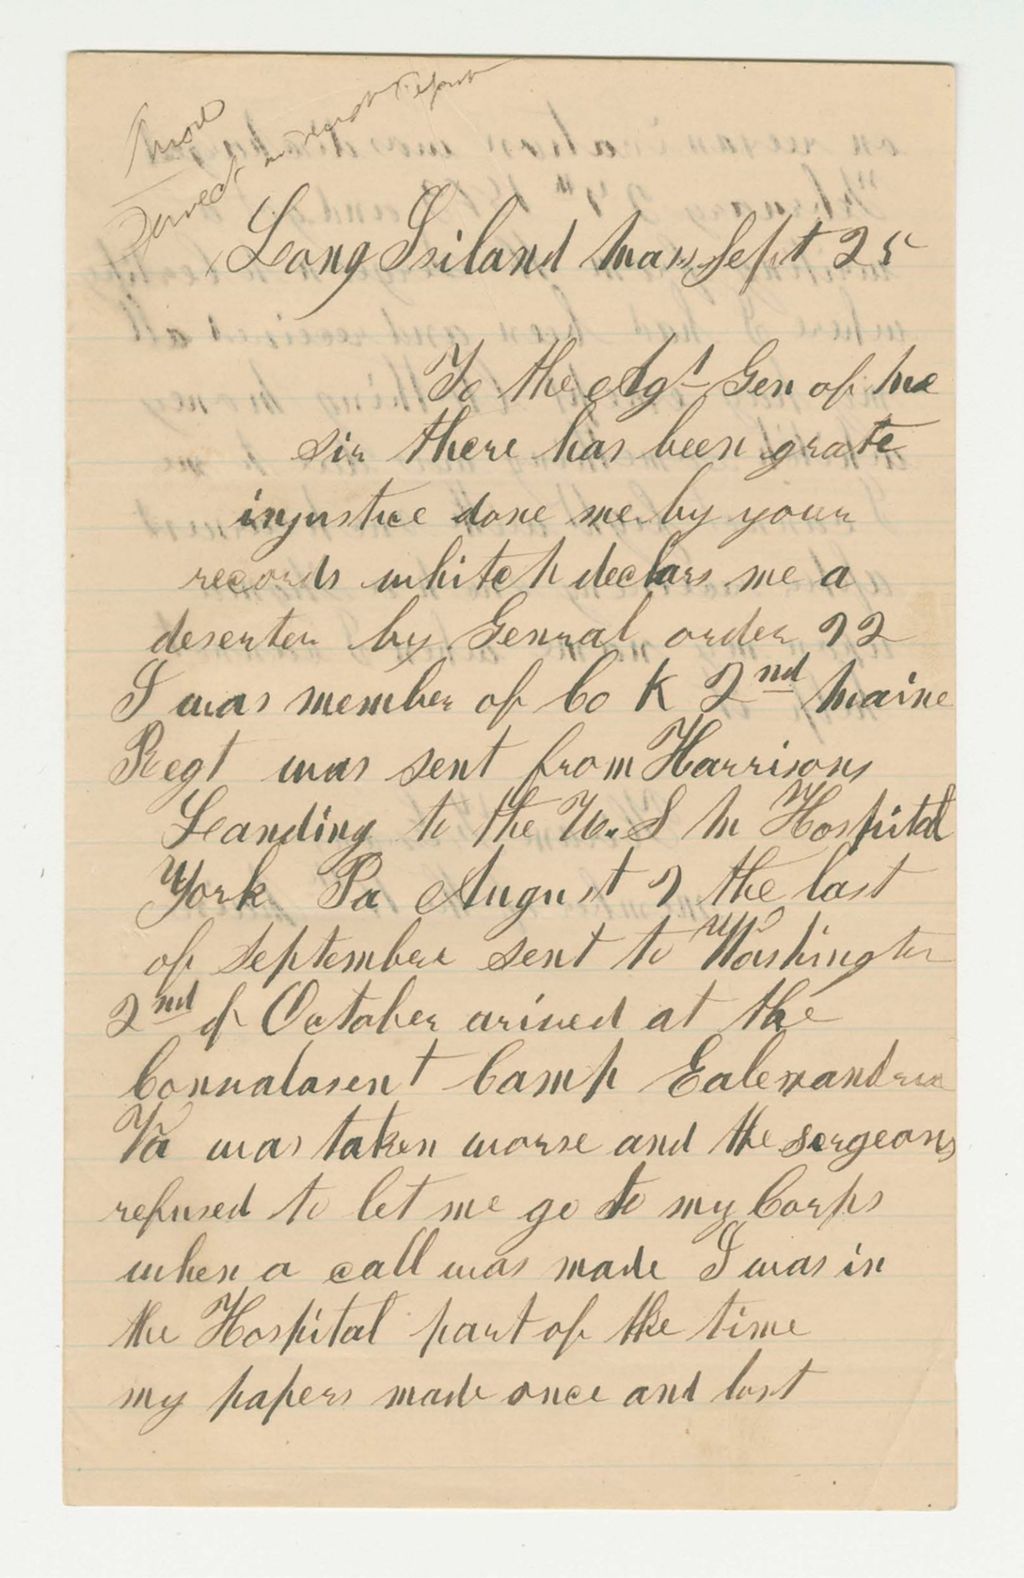 Long Isiland Mass Sept 25
To the Agt Gen of Me
Sir there has been grate
injustice done me by your
records whitch declars me a
deserter by Genral order 22
I was member of Co K 2nd Maine
Regt was sent from Harrisons
Landing to the U. S M Hospital
York Pa August 7 the last
of September sent to Washington
2nd of October arived at the
Convalasent Camp Ealexandria
Va was taken worse and the sergeons
refused to let me go to my Corps
when a call was made I was in
the Hospital part of the time
my papers made once and lost